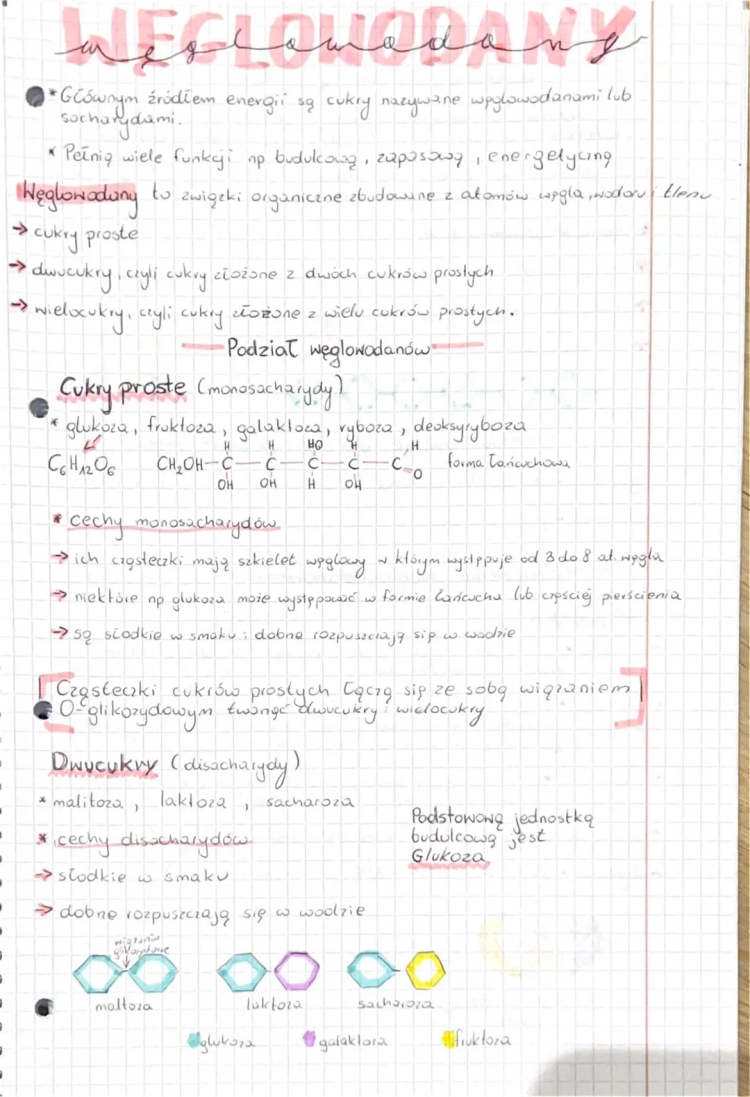 WĘGLOWODANY
węglowodany
* Głównym źródłem energii są cukry nazywane węglowodanami lub
sacharydami.
* Pełnią wiele funkcji np budulcową, zapasową, energetyczną
Węglowodany to związki organiczne zbudowane z atomów węgla, wodoru i tlenu
→ cukry proste
→ dwucukry, czyli cukry złożone z dwóch cukrów prostych
→ wielocukry, czyli cukry złożone z wielu cukrów prostych.
Podział węglowodanów
Cukry proste (monosacharydy)
* glukoza, fruktoza, galaktoza, ryboza, deoksyryboza
H H HO H H
C₆H₁₂O₆ CH₂OH-C-C-C-C-C O forma łańcuchowa
OH OH H OH
* cechy monosacharydów
→ ich cząsteczki mają szkielet węglowy w którym występuje od 3 do 8 at. węgla
→ niektóre np glukoza może występować w formie łańcucha lub częściej pierścienia
→ są słodkie w smaku i dobrze rozpuszczają się w wodzie
[Cząsteczki cukrów prostych łączą się ze sobą wiązaniem
O-glikozydowym tworząc dwucukry i wielocukry]
Dwucukry (disacharydy)
* malitoza, laktoza, sacharoza
* cechy disacharydów
→ słodkie w smaku
→ dobrze rozpuszczają się w wodzie
Podstawową jednostką
budulcową jest
Glukoza
wiązanie
glikozydowe
maltoza laktoza sacharoza
glukoza galaktoza fruktoza